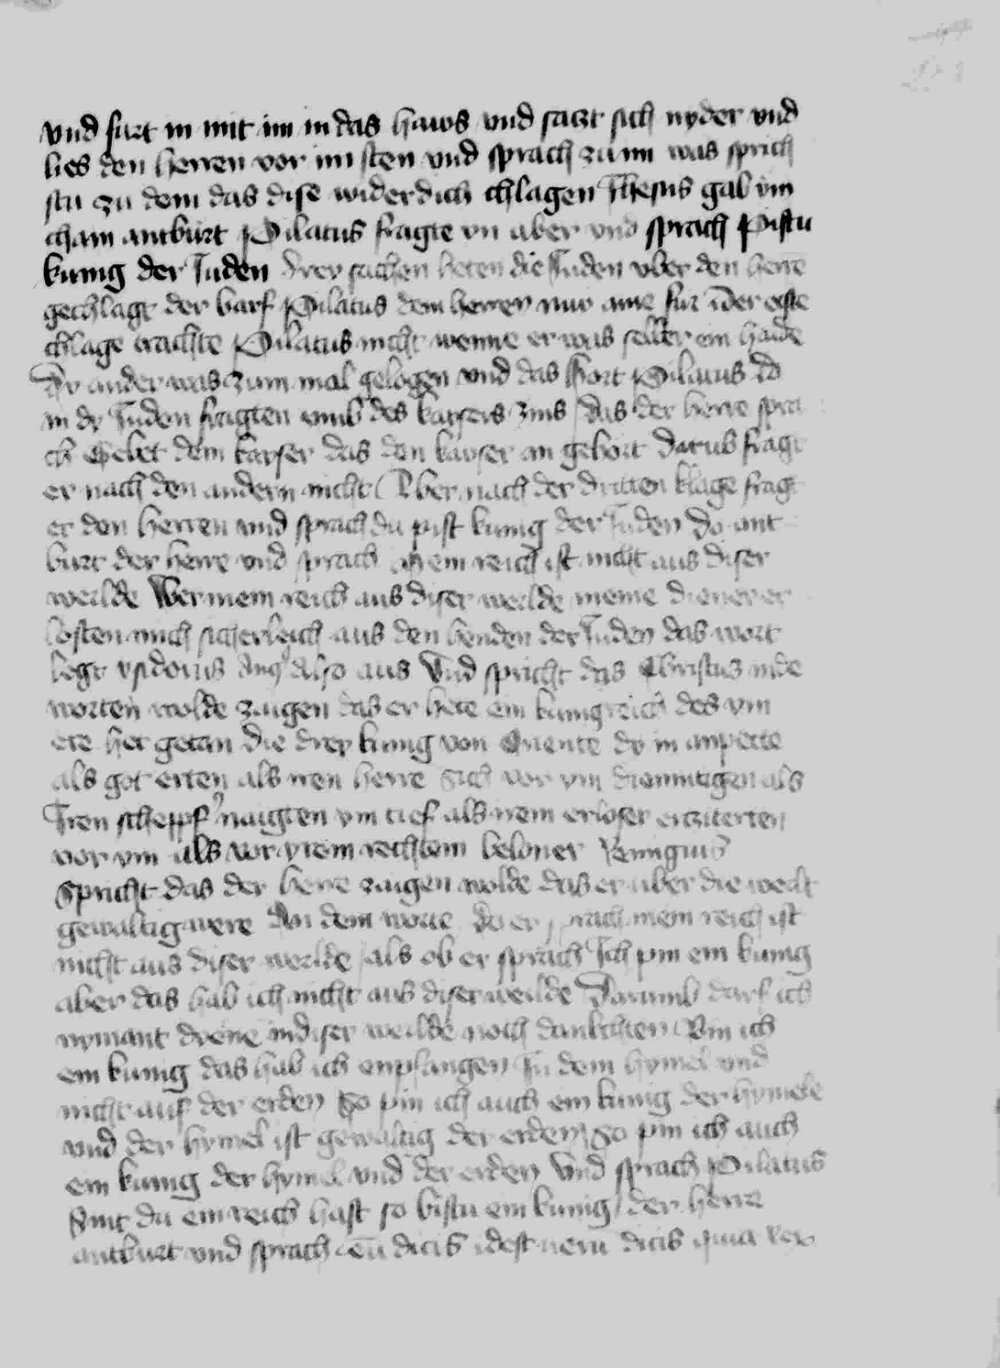 vnd furt in mit im in das haws vnd satzt sich nyder vnd
lies den herren vor im sten vnd sprach zu im was sprich
stu zu dem das dise wider dich chlagen Jhesus gab ym
chain antburt Pilatus fragte yn aber vnd sprach Pistu
kunig der Juden drey sachen heten die Juden vber den herre
gechlagt der barf Pilatus dem herren nur aine fur der erste
chlage trachte Pilatus nicht wenne er was selber ein haide
Dy ander was zum mal gelogen vnd das hort Pilatus do
in dy Juden fragten vmb des kaysers zins das der herre spra
ch Gebet dem kayser das den kayser an gehort darub fragt
er nach den andern nicht Aber nach der dritten klage fragt
er den herren vnd sprach du pist kunig der Juden Do ant
burt der herre vnd sprach Mein reich ist nicht aus diser
werlde Wer mein reich aus diser werlde meine diener er
losten mich sicherleich aus den henden der Juden das wort
legt ysidorus also aus Vnd spricht das Christus in de
worten wolde zaigen das er hete ein kunigreich des ym
ere het getan die drey kunig von Oriente dy in anpette
als got erten als iren herre sich vor ym diemutigen als
Iren schepfer naigten ym tief als irem erloser erziterten
vor ym als vor yrem rechtem beloner Remigius
Spricht das der herre zaigen wolde das er vber die werlt
gewaltig were An dem worte do er sprach mein reich ist
nicht aus diser werlde als ob er sprach Ich pin ein kunig
aber das hab ich nicht aus diser werlde Darumb darf ich
nymant diene in diser werlde noch Pin ich
ein kunig das hab ich enpfangen In dem hymel vnd
nicht auf der erden So pin ich auch ein kunig der hymele
vnd der hymel ist gewaltig der erden So pin ich auch
ein kunig der hymel vnd der erden Vnd sprach Pilatus
Seint du ein reich hast so bistu ein kunig der herre
antburt vnd sprach tu dicis idest veru dicis quia Rex